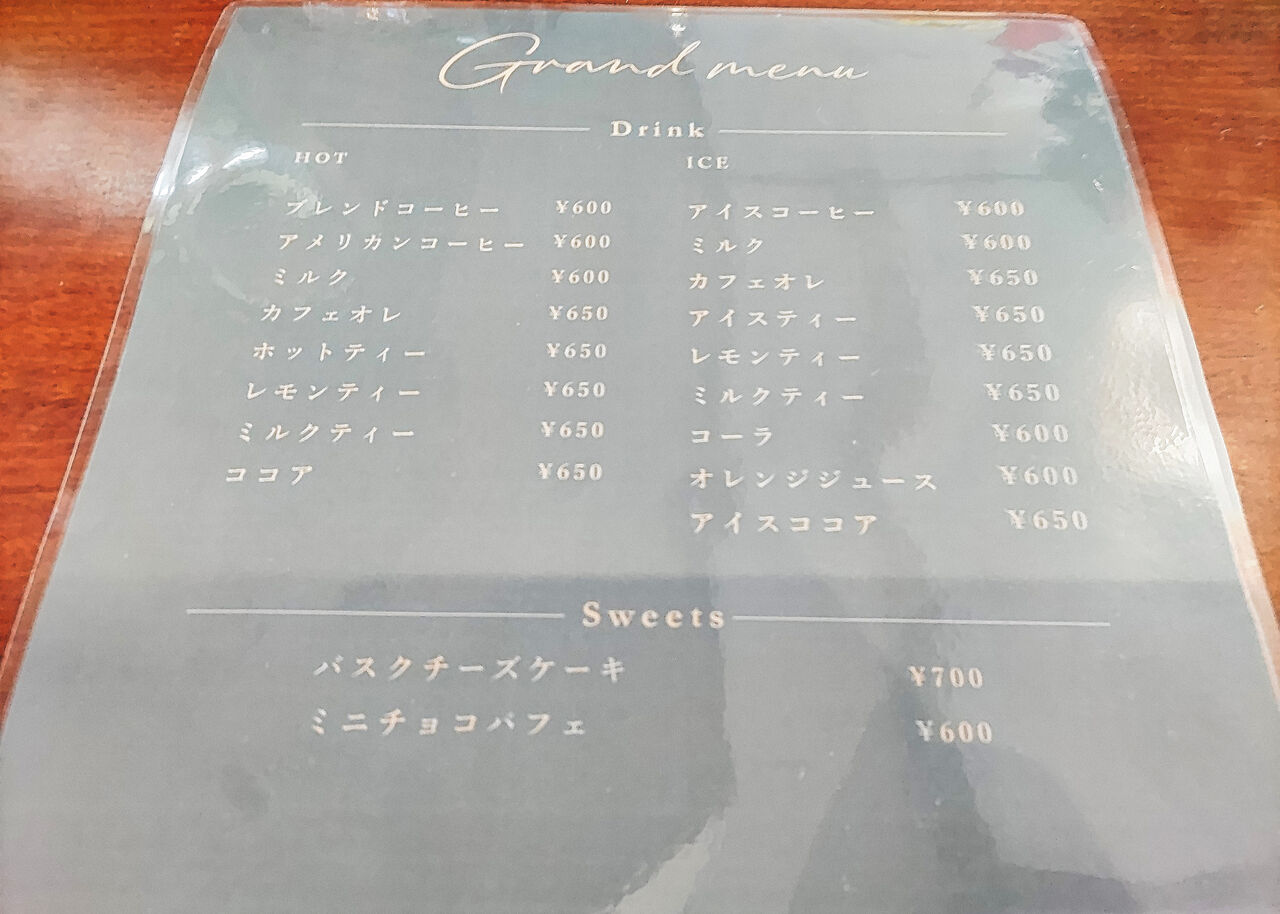 Grand menu
Drink
HOT
ブレンドコーヒー ¥600
アメリカンコーヒー ¥600
ミルク ¥600
カフェオレ ¥650
ホットティー ¥650
レモンティー ¥650
ミルクティー ¥650
ココア ¥650
ICE
アイスコーヒー ¥600
ミルク ¥600
カフェオレ ¥650
アイスティー ¥650
レモンティー ¥650
ミルクティー ¥650
コーラ ¥600
オレンジジュース ¥600
アイスココア ¥650
Sweets
バスクチーズケーキ ¥700
ミニチョコパフェ ¥600